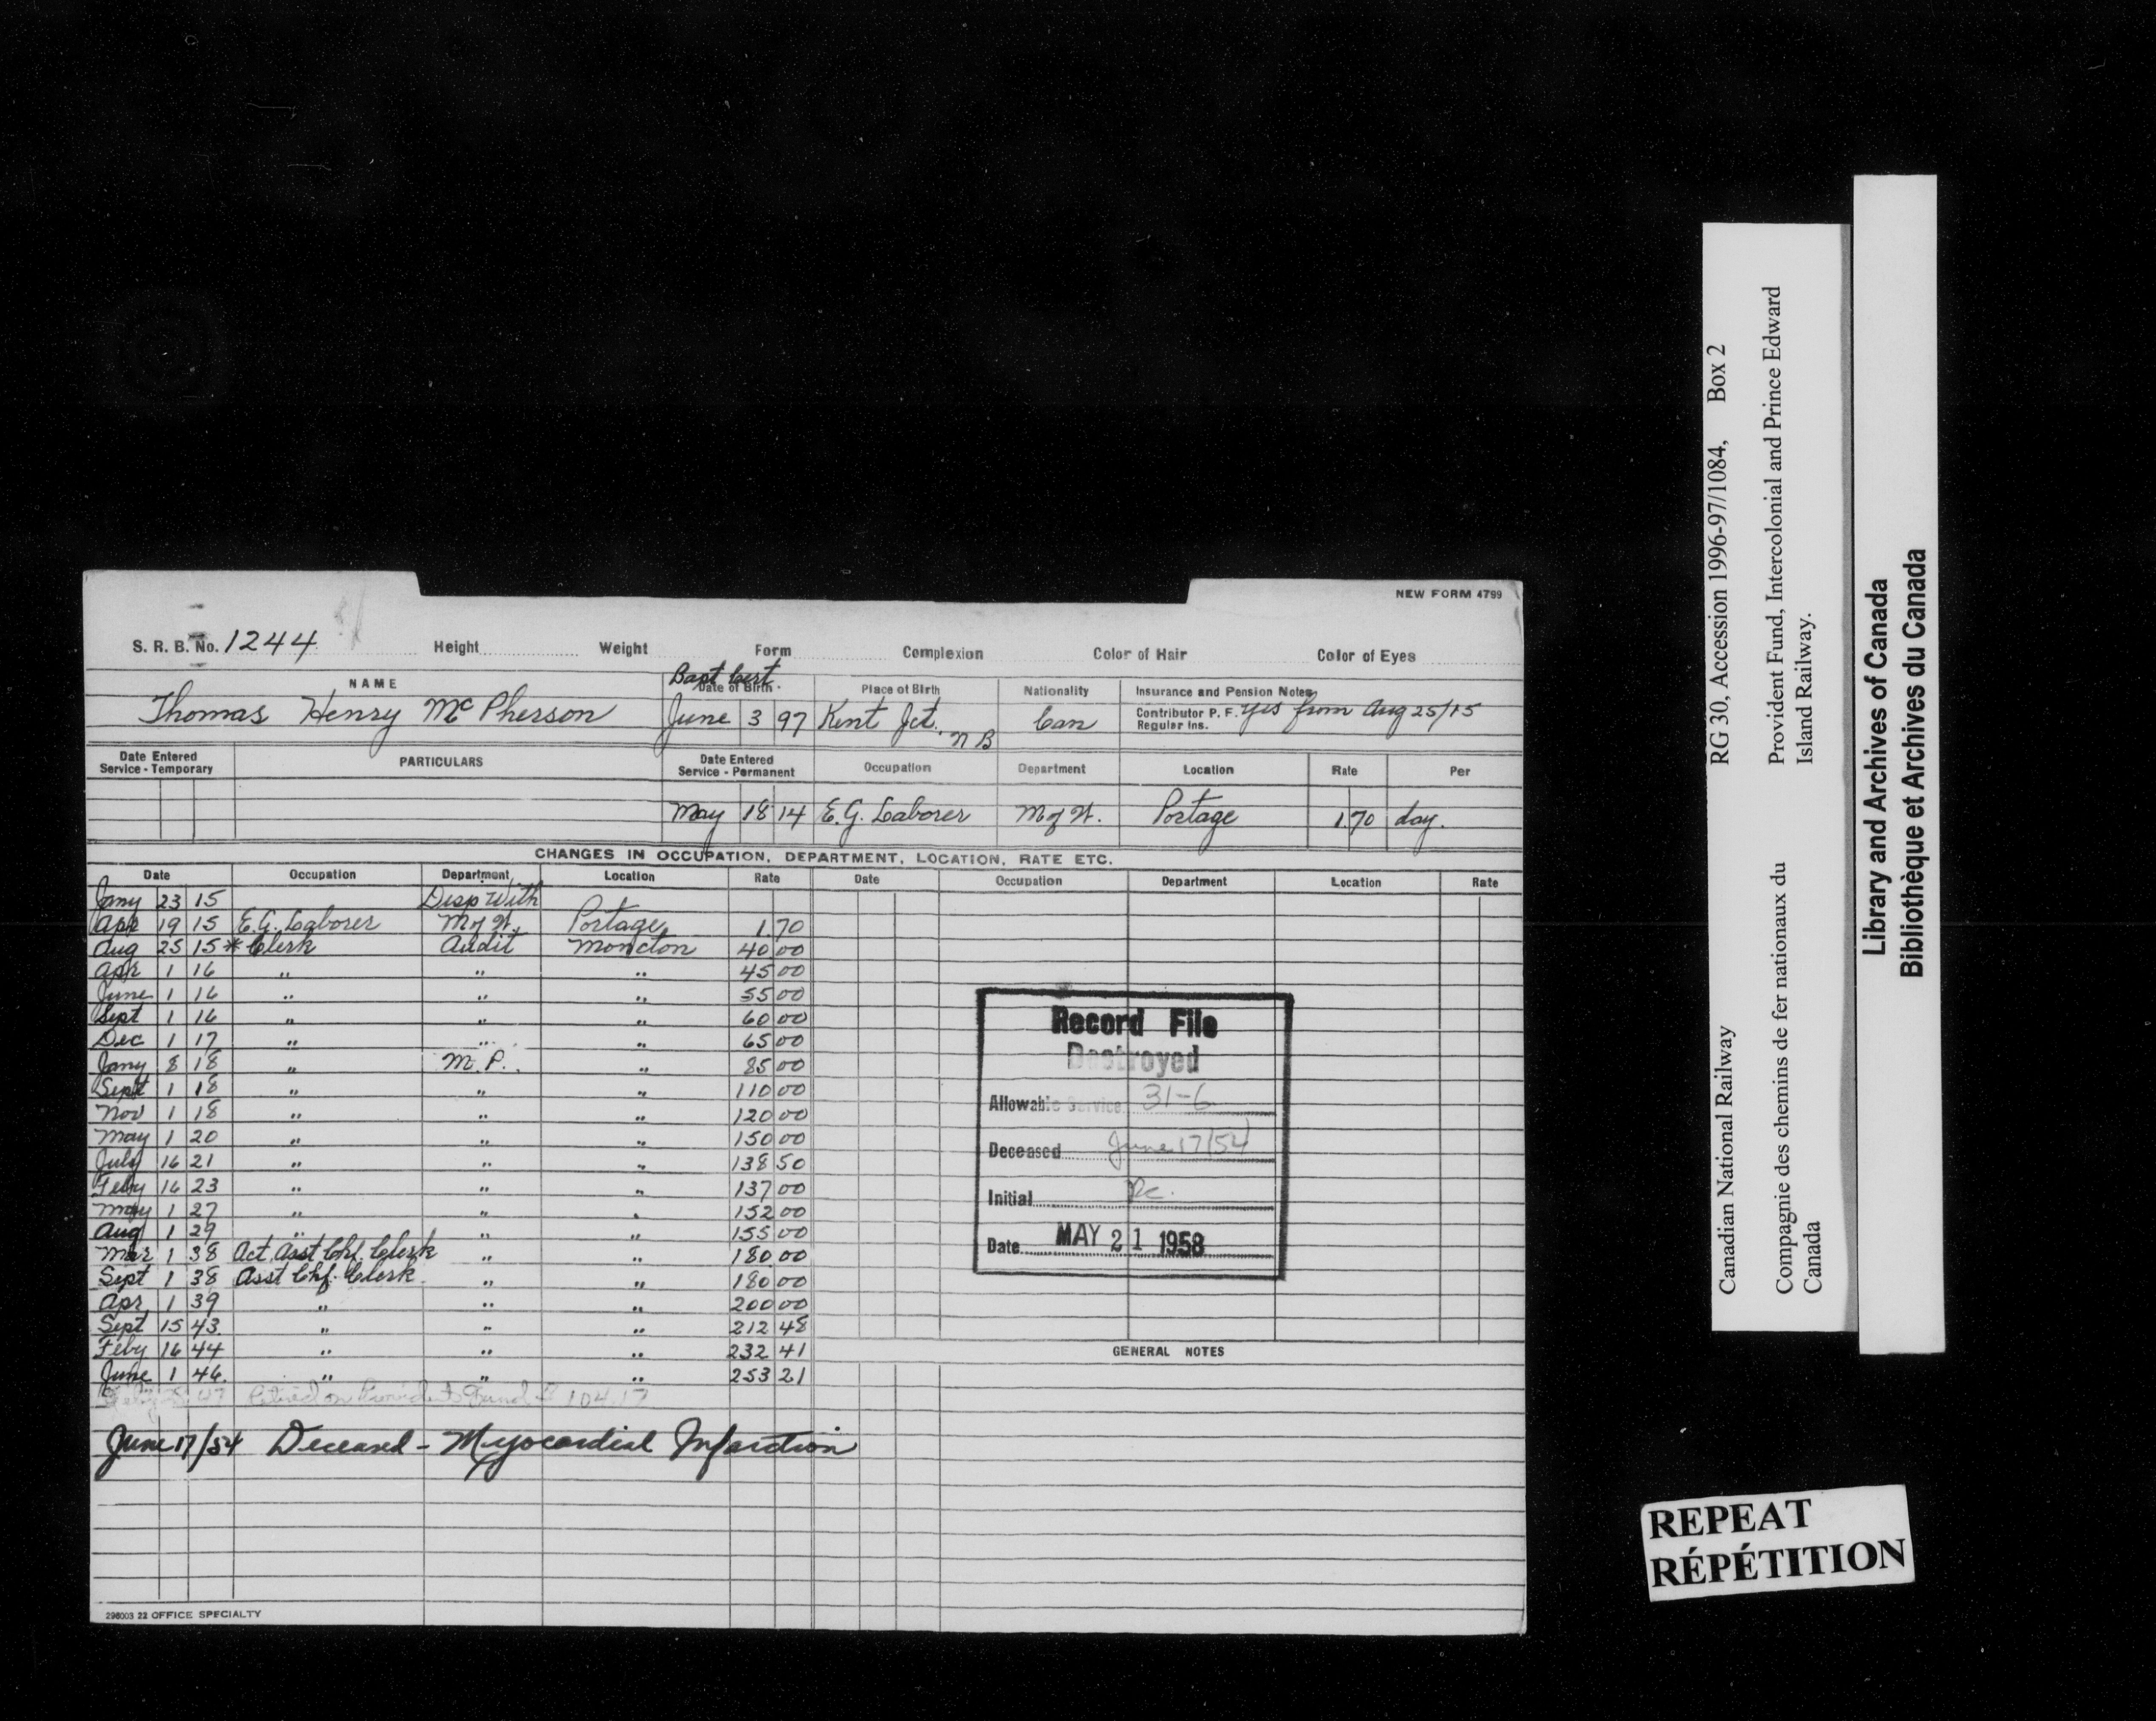 NEW FORM 4799
S. R. B. No. 1244 Height Weight Form Complexion Color of Hair Color of Eyes
Bapt Cert
NAME Date of Birth Place of Birth Nationality Insurance and Pension Notes
Thomas Henry McPherson June 3 97 Kent Jct. N B Can Contributor P. F. Yes from Aug 25/15
Regular Ins.
Date Entered Service - Temporary PARTICULARS Date Entered Service - Permanent Occupation Department Location Rate Per
May 18 14 E.G. Laborer M of W. Portage 1 70 day.
CHANGES IN OCCUPATION, DEPARTMENT, LOCATION, RATE ETC.
Date Occupation Department Location Rate Date Occupation Department Location Rate
Jany 23 15 Disp With
Apr 19 15 E.G. Laborer M of W. Portage 1 70
Aug 25 15 * Clerk Audit Moncton 40 00
Apr 1 16 " " " 45 00
June 1 16 " " " 55 00
Sept 1 16 " " " 60 00
Dec 1 17 " " " 65 00
Jany 8 18 " M. P. " 85 00
Sept 1 18 " " " 110 00
Nov 1 18 " " " 120 00
May 1 20 " " " 150 00
July 16 21 " " " 138 50
Feby 16 23 " " " 137 00
May 1 27 " " " 152 00
Aug 1 29 " " " 155 00
Mar 1 38 Act. Asst Chf. Clerk " " 180 00
Sept 1 38 Asst Chf. Clerk " " 180 00
Apr 1 39 " " " 200 00
Sept 15 43. " " " 212 48
Feby 16 44 " " " 232 41
June 1 46. " " " 253 21
47 Retired on Provident Fund $104.17
June 17/54 Deceased - Myocardial Infarction
Record File
Destroyed
Allowable Service 31-6
Deceased June 17/54
Initial
Date MAY 21 1958
GENERAL NOTES
298003 22 OFFICE SPECIALTY
RG 30, Accession 1996-97/1084, Box 2
Canadian National Railway
Provident Fund, Intercolonial and Prince Edward
Island Railway.
Compagnie des chemins de fer nationaux du
Canada
Library and Archives of Canada
Bibliothèque et Archives du Canada
REPEAT
RÉPÉTITION